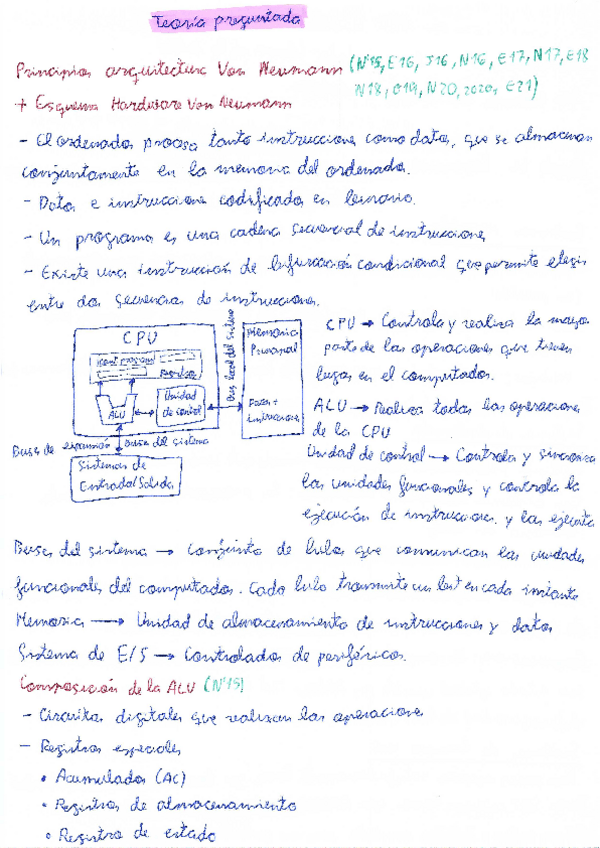 Teoría preguntada
Principios arquitectura Von Neumann (N'15, E'16, J'16, N'16, E'17, N'17, E'18
+ Esquema Hardware Von Neumann N'18, E'19, N'20, 2020, E'21)
- El ordenador procesa tanto instrucciones como datos, que se almacenan
conjuntamente en la memoria del ordenador.
- Datos e instrucciones codificados en binario.
- Un programa es una cadena secuencial de instrucciones
- Existe una instrucción de bifurcación condicional que permite elegir
entre dos secuencias de instrucciones.
CPU
Registros
ALU
Unidad de control
Bus local del sistema
Memoria Principal
Datos + instrucciones
Buses de expansión
Buses del sistema
Sistemas de
Entrada/Salida
CPU → Controla y realiza la mayor
parte de las operaciones que tienen
lugar en el computador.
ALU → Realiza todas las operaciones
de la CPU
Unidad de control → Controla y sincroniza
las unidades funcionales y controla la
ejecución de instrucciones y las ejecuta
Buses del sistema → Conjunto de hilos que comunican las unidades
funcionales del computador. Cada hilo transmite un bit en cada instante
Memoria → Unidad de almacenamiento de instrucciones y datos
Sistema de E/S → Controlador de periféricos.
Composición de la ALU (N'15)
- Circuitos digitales que realizan las operaciones
- Registros especiales
• Acumulador (AC)
• Registros de almacenamiento
• Registro de estado